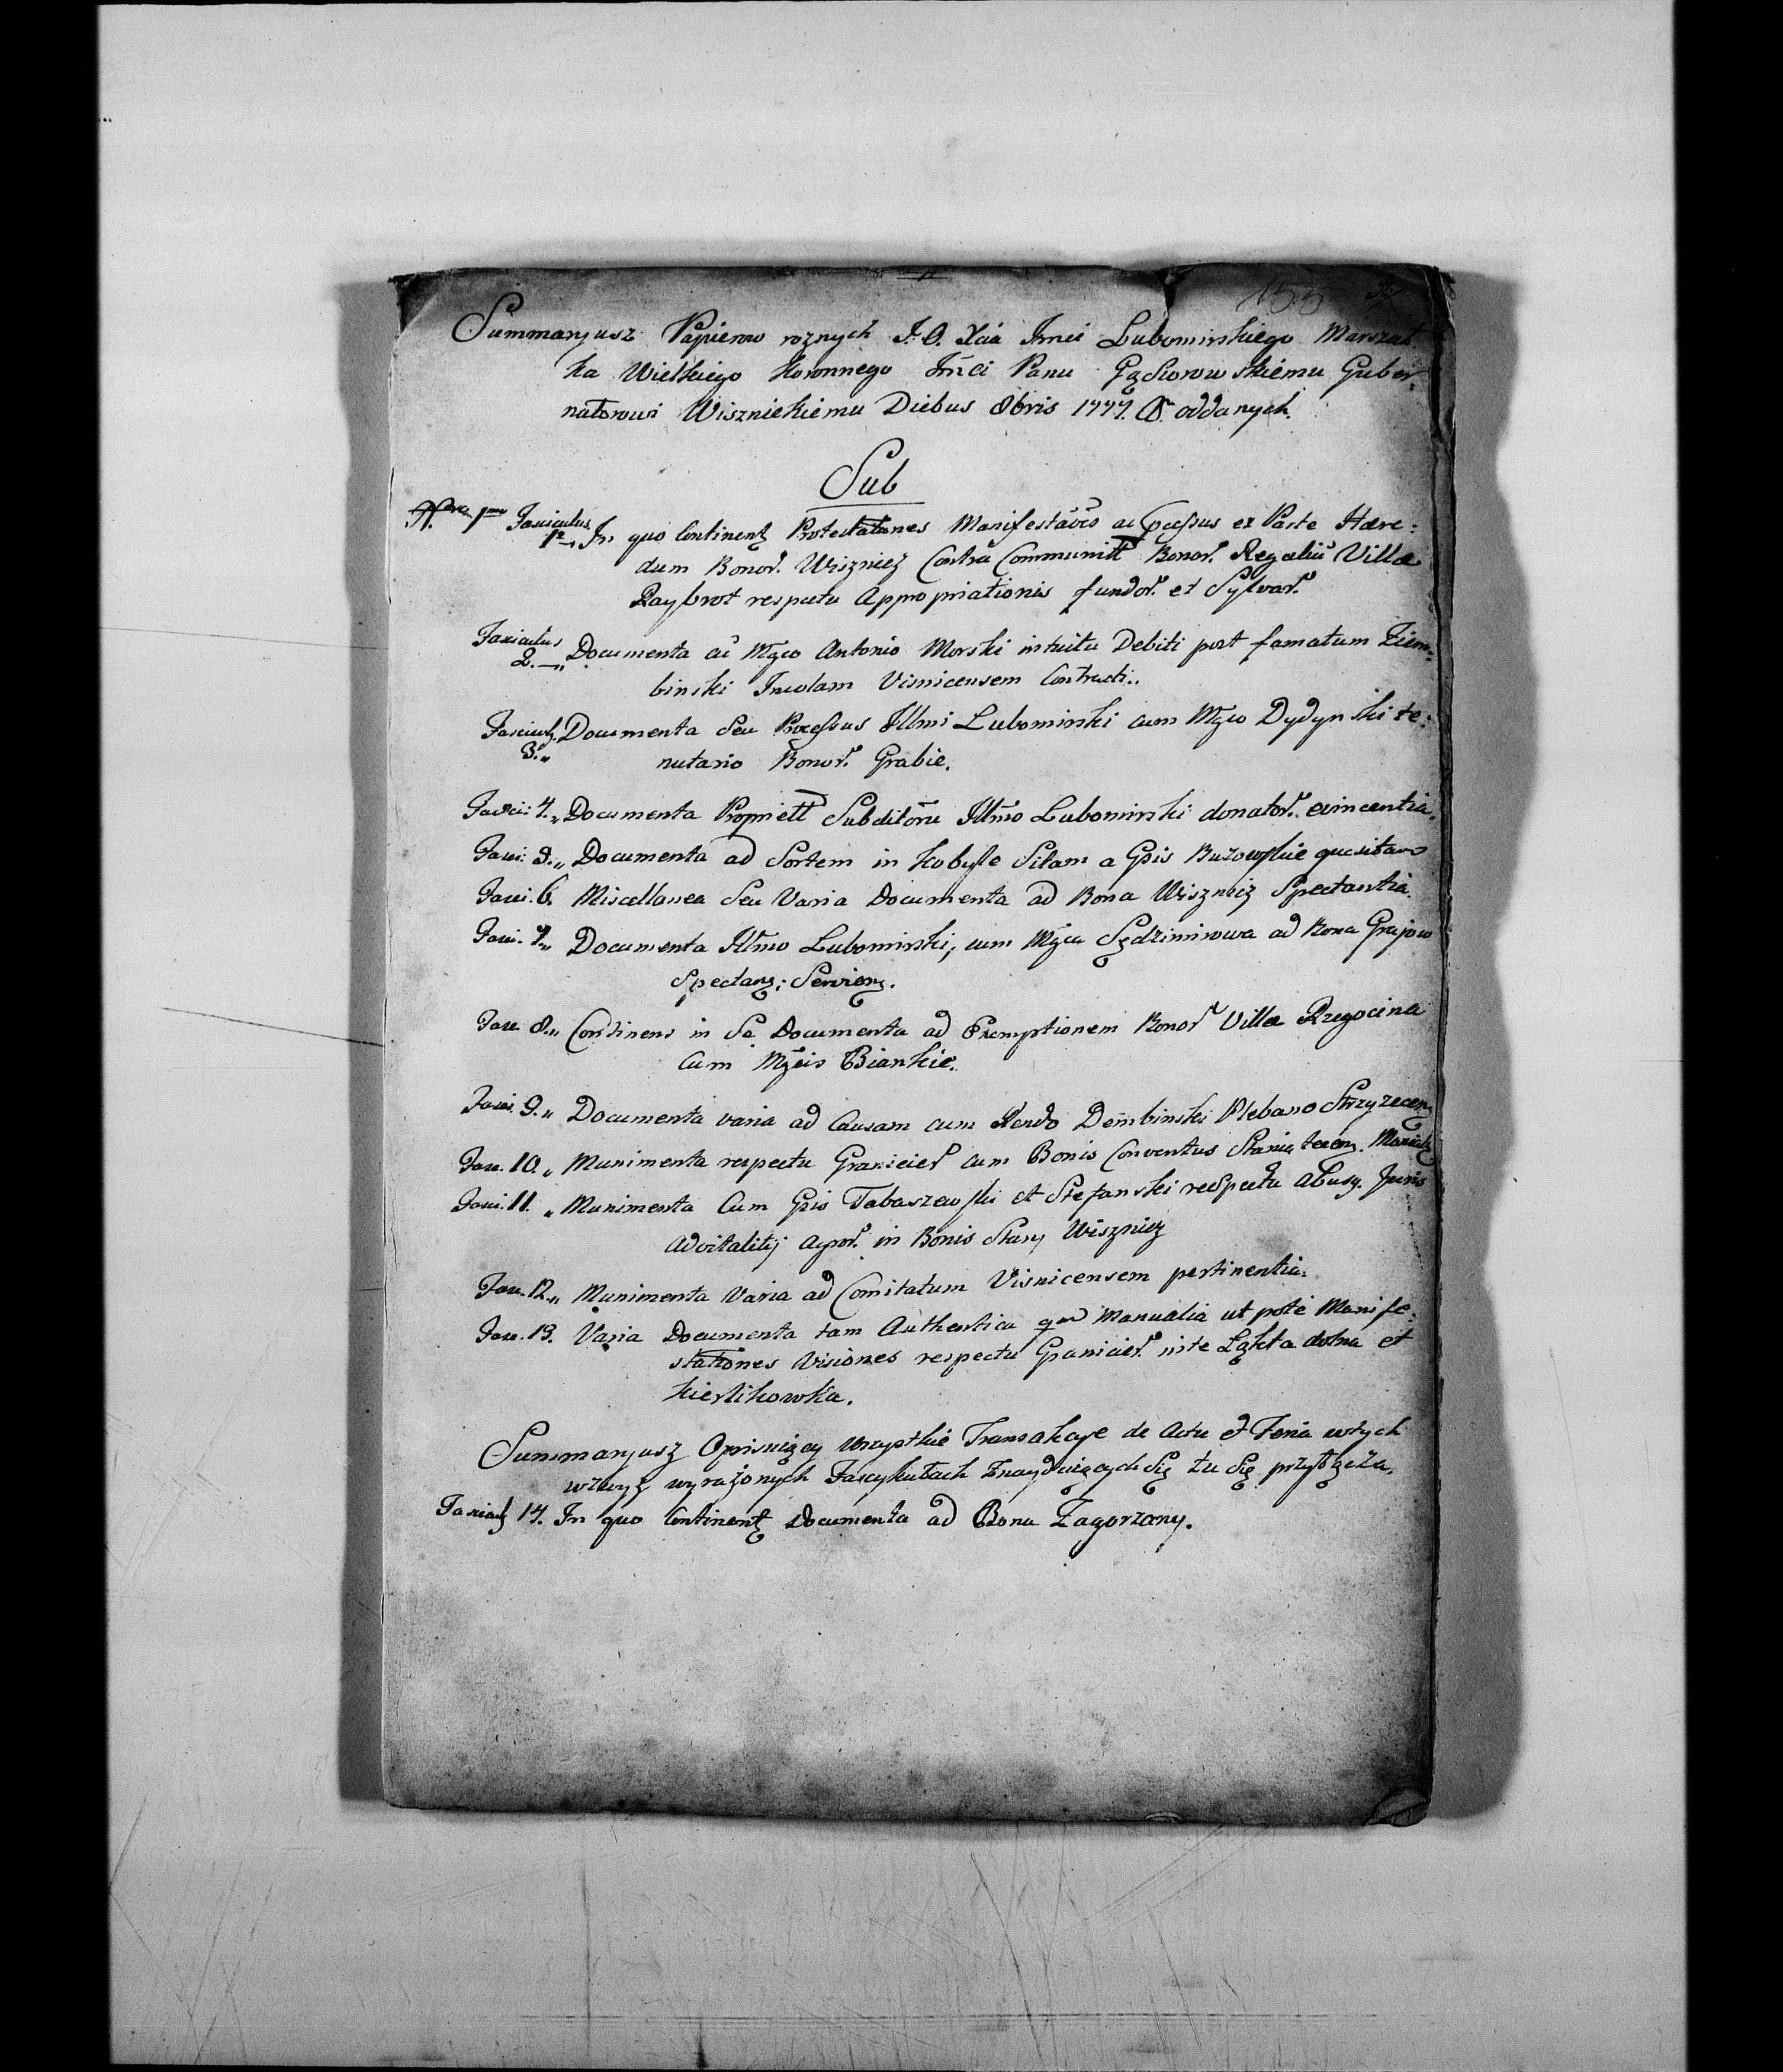 153
Summaryusz Papierow roznych J. O. Xcia Jmci Lubomirskiego Marszał
ka Wielkiego Koronnego Jmci Panu Gąsiorowskiemu Guber-
natorowi Wisznickiemu Diebus 8bris 1777. Ao oddanych.
Sub
Nro 1mo Fasciculus
1o. In quo Continentz Protestationes Manifestaões ac Processus ex Parte Hære:
dum Bonor. Wisznicz Contra Communittt Bonor. Regaliũ Villæ
Raybrot respectu Appropriationis fundor. et Sylvar.
Fasciculus
2. Documenta cũ Mgco Antonio Morski intuitu Debiti post famatum Ziem:
binski Incolam Visnicensem Contracti.
Fascicul.
3. Documenta Seu Processus Illmi Lubomirski cum Mgco Dydynski te:
nutario Bonor. Grabie.
Fasci: 4. Documenta Propriett Subditorũ Illmo Lubomirski donator. evincentia.
Fasci. 5. Documenta ad Sortem in Kobyle Sitam a Gsis Buzowskie quesitam
Fasci. 6. Miscellanea Seu Varia Documenta ad Bona Wisznicz Spectantia.
Fasci. 7. Documenta Illmo Lubomirski, cum Mgca Sędzimirowa ad Bona Grajow
Spectanz; Servienz.
Fasc. 8. Continens in Se Documenta ad Exemptionem Bonor. Villæ Rzegocina
Cum Mgcis Biankie.
Fasci. 9. Documenta varia ad Causam cum Rendo Dembinski Plebano Strzyzecenz
Fasc. 10. Munimenta respectu Granicier. cum Bonis Conventus Staniątecenz. Monialz
Fasci. 11. Munimenta Cum Gsis Tabaszewski et Stefanski respectu abusz. Juris
Advitalitij Agror. in Bonis Stary Wisznicz
Fasc. 12. Munimenta Varia ad Comitatum Visnicensem pertinentia.
Fasc. 13. Varia Documenta tam Authentica qm Manualia ut poté Manife:
stationes Visiones respectu Granicier. inte Łąkta dolna et
Kierlikowka.
Summaryusz Opisuiący wszystkie Transakcye de Actu et Feria wtych
wzwyż wyrażonych Fascykułach Znayduiących Się tu Się przyłącza.
Fascicul 14. In quo Continentz Documenta ad Bona Zagorzany.